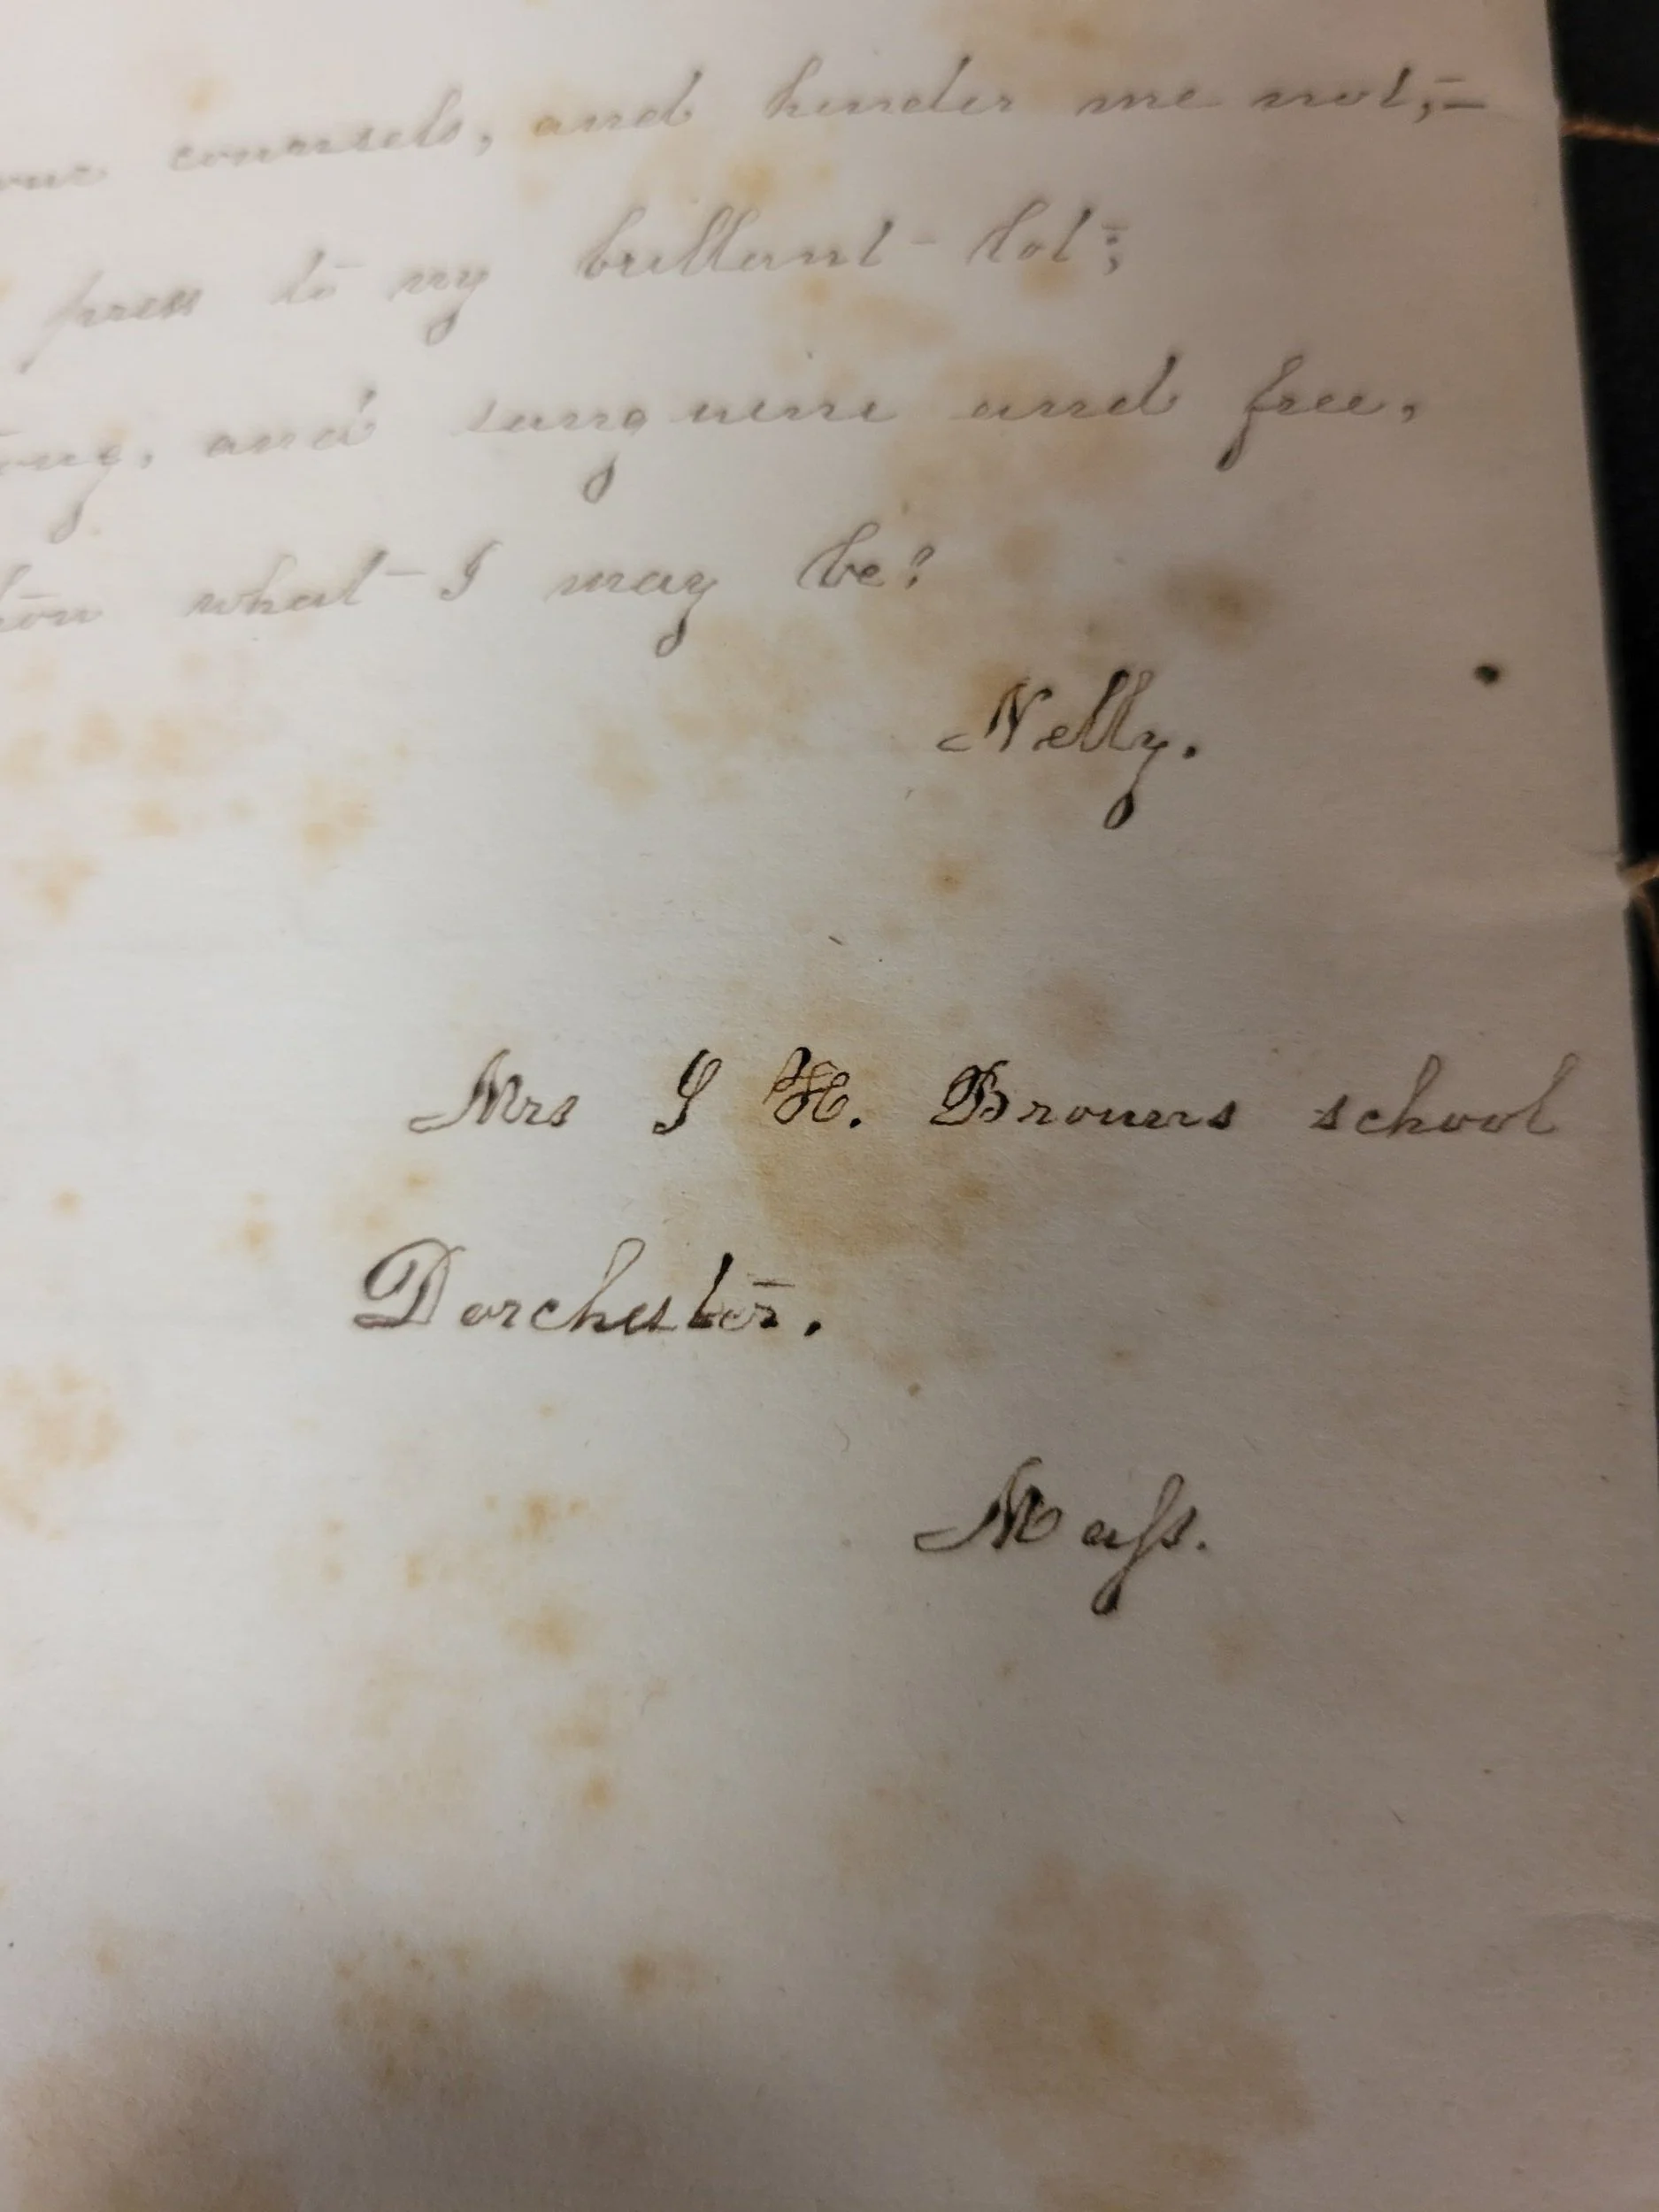 counsels, and hinder me not;—
press to my brilliant lot;
and sanguine and free,
what I may be?
Nelly.
Mrs J H. Browns school
Dorchester.
Mass.